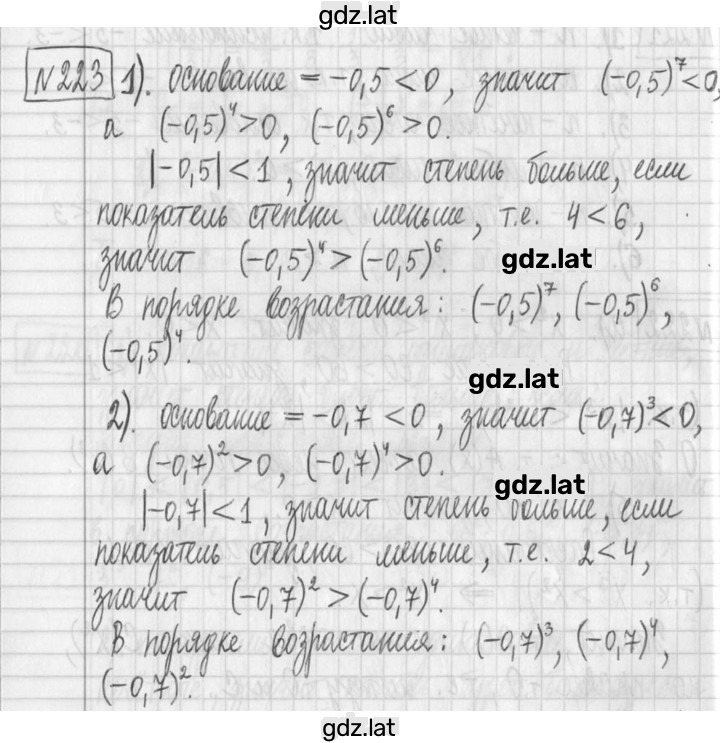 gdz.lat
N 223 1). основание = -0,5 < 0, значит (-0,5)⁷ < 0,
а (-0,5)⁴ > 0, (-0,5)⁶ > 0.
|-0,5| < 1, значит степень больше, если
показатель степени меньше, т.е. 4 < 6,
значит (-0,5)⁴ > (-0,5)⁶. gdz.lat
В порядке возрастания: (-0,5)⁷, (-0,5)⁶,
(-0,5)⁴.
gdz.lat
2). основание = -0,7 < 0, значит (-0,7)³ < 0,
а (-0,7)² > 0, (-0,7)⁴ > 0.
gdz.lat
|-0,7| < 1, значит степень больше, если
показатель степени меньше, т.е. 2 < 4,
значит (-0,7)² > (-0,7)⁴.
В порядке возрастания: (-0,7)³, (-0,7)⁴,
(-0,7)².
gdz.lat